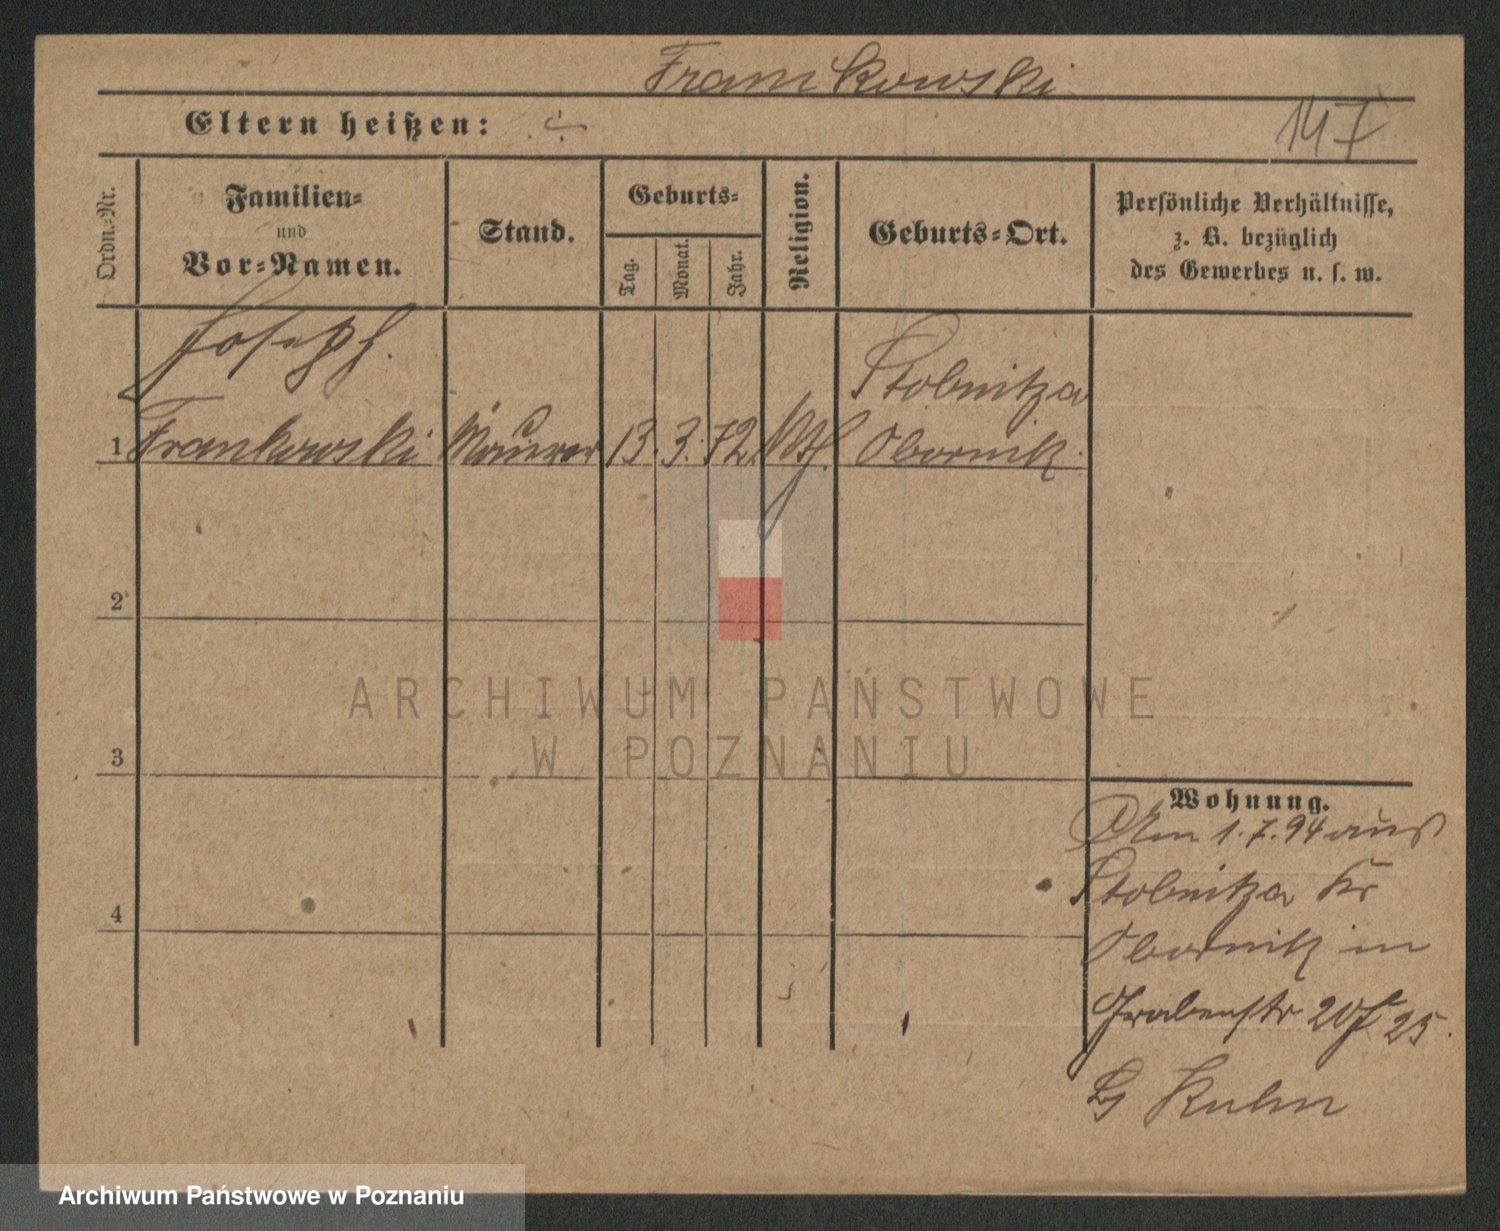 Frankowski
Eltern heißen: ÷
147
Ordn.-Nr.
Familien-
und
Vor-Namen.
Stand.
Geburts-
Tag.
Monat.
Jahr.
Religion.
Geburts-Ort.
Persönliche Verhältnisse,
z. B. bezüglich
des Gewerbes u. s. w.
Joseph.
Stobnitza
1 Frankowski Maurer 13. 3. 72. Kth. Obornik.
2
3
4
ARCHIWUM PAŃSTWOWE
W POZNANIU
Wohnung.
Am 1.7.94 aus
Stobnitza Kr
Obornik in
Grabenstr 25.
Kuhn
Archiwum Państwowe w Poznaniu